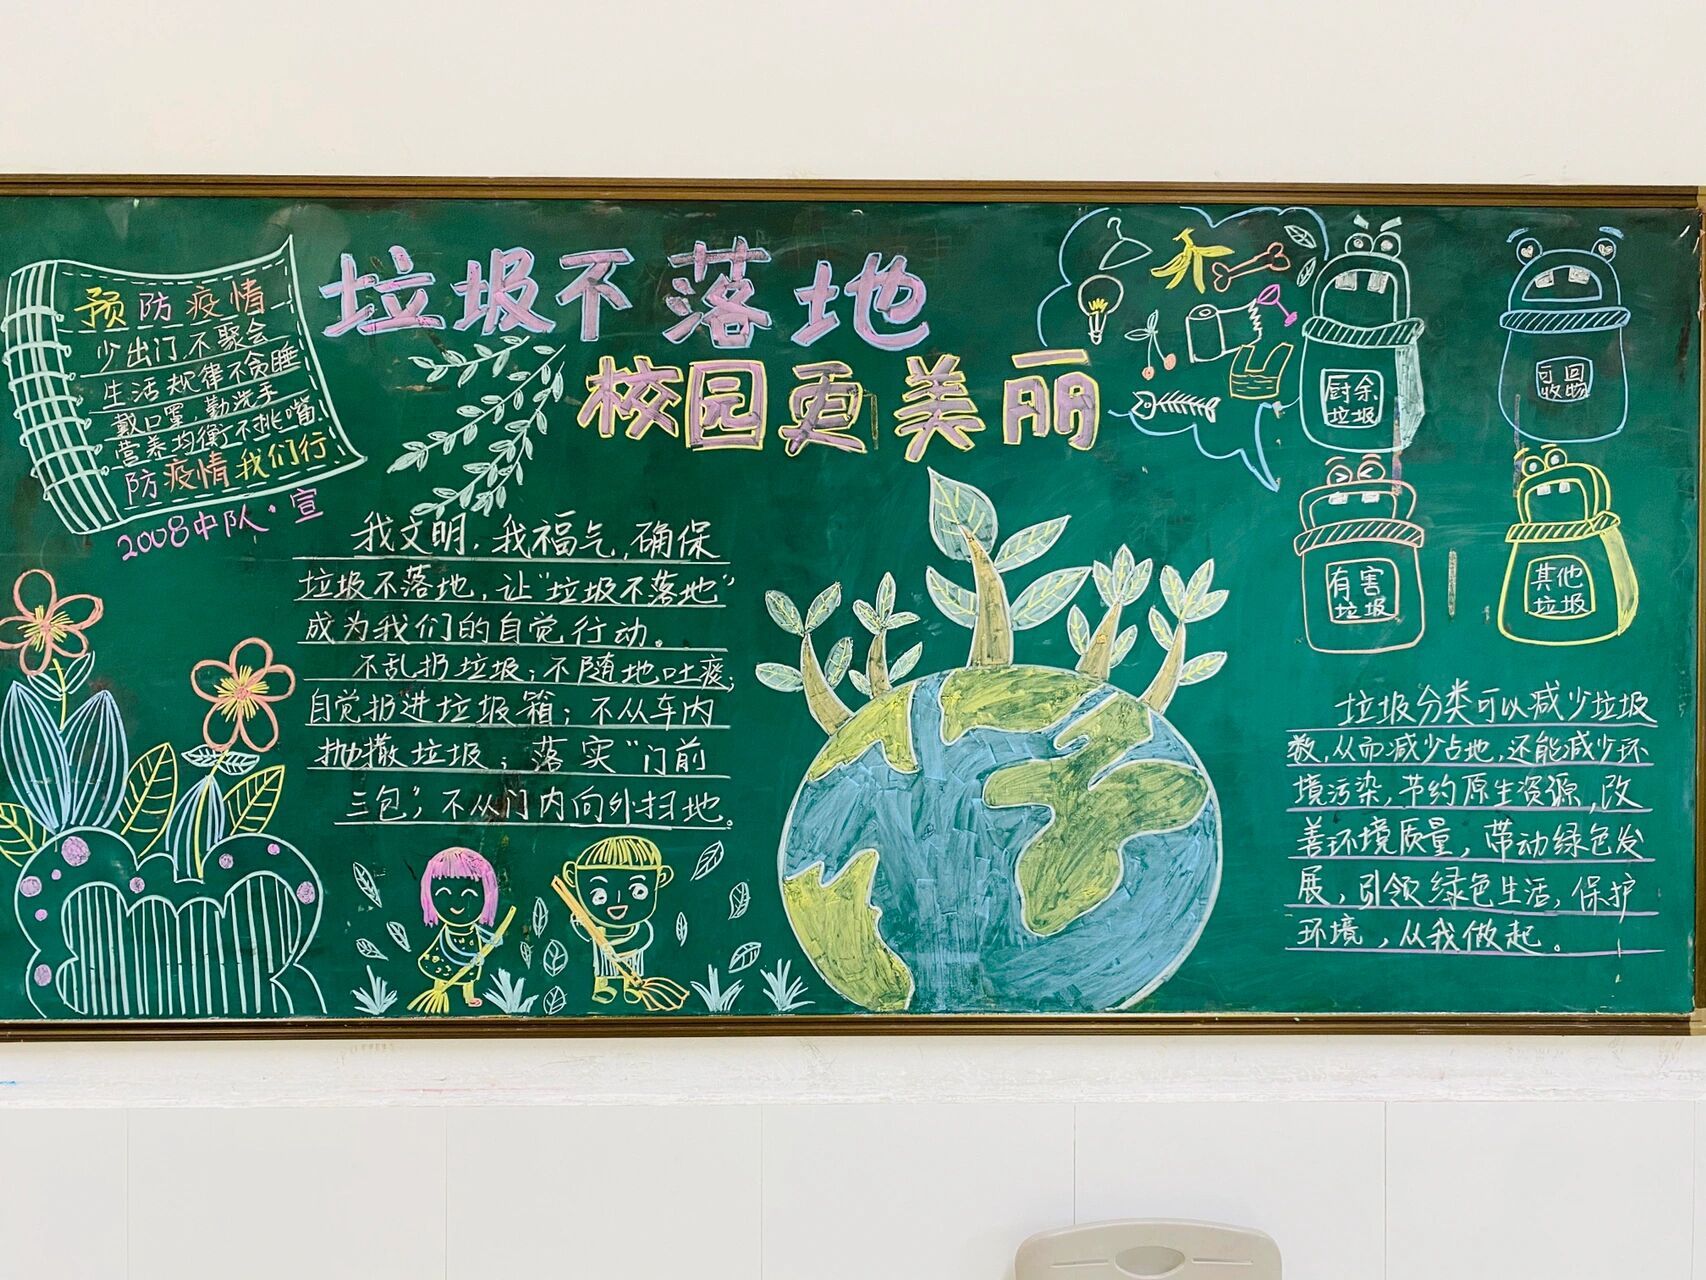 垃圾不落地
校园更美丽
预防疫情
少出门,不聚会
生活规律不贪睡
戴口罩,勤洗手
营养均衡不挑嘴
防疫情我们行
2008中队·宣
我文明,我福气,确保
垃圾不落地,让“垃圾不落地”
成为我们的自觉行动。
不乱扔垃圾;不随地吐痰;
自觉扔进垃圾箱;不从车内
抛撒垃圾;落实“门前
三包”;不从门内向外扫地。
厨余
垃圾
可回
收物
有害
垃圾
其他
垃圾
垃圾分类可以减少垃圾
数,从而减少占地,还能减少环
境污染,节约原生资源,改
善环境质量,带动绿色发
展,引领绿色生活,保护
环境,从我做起。